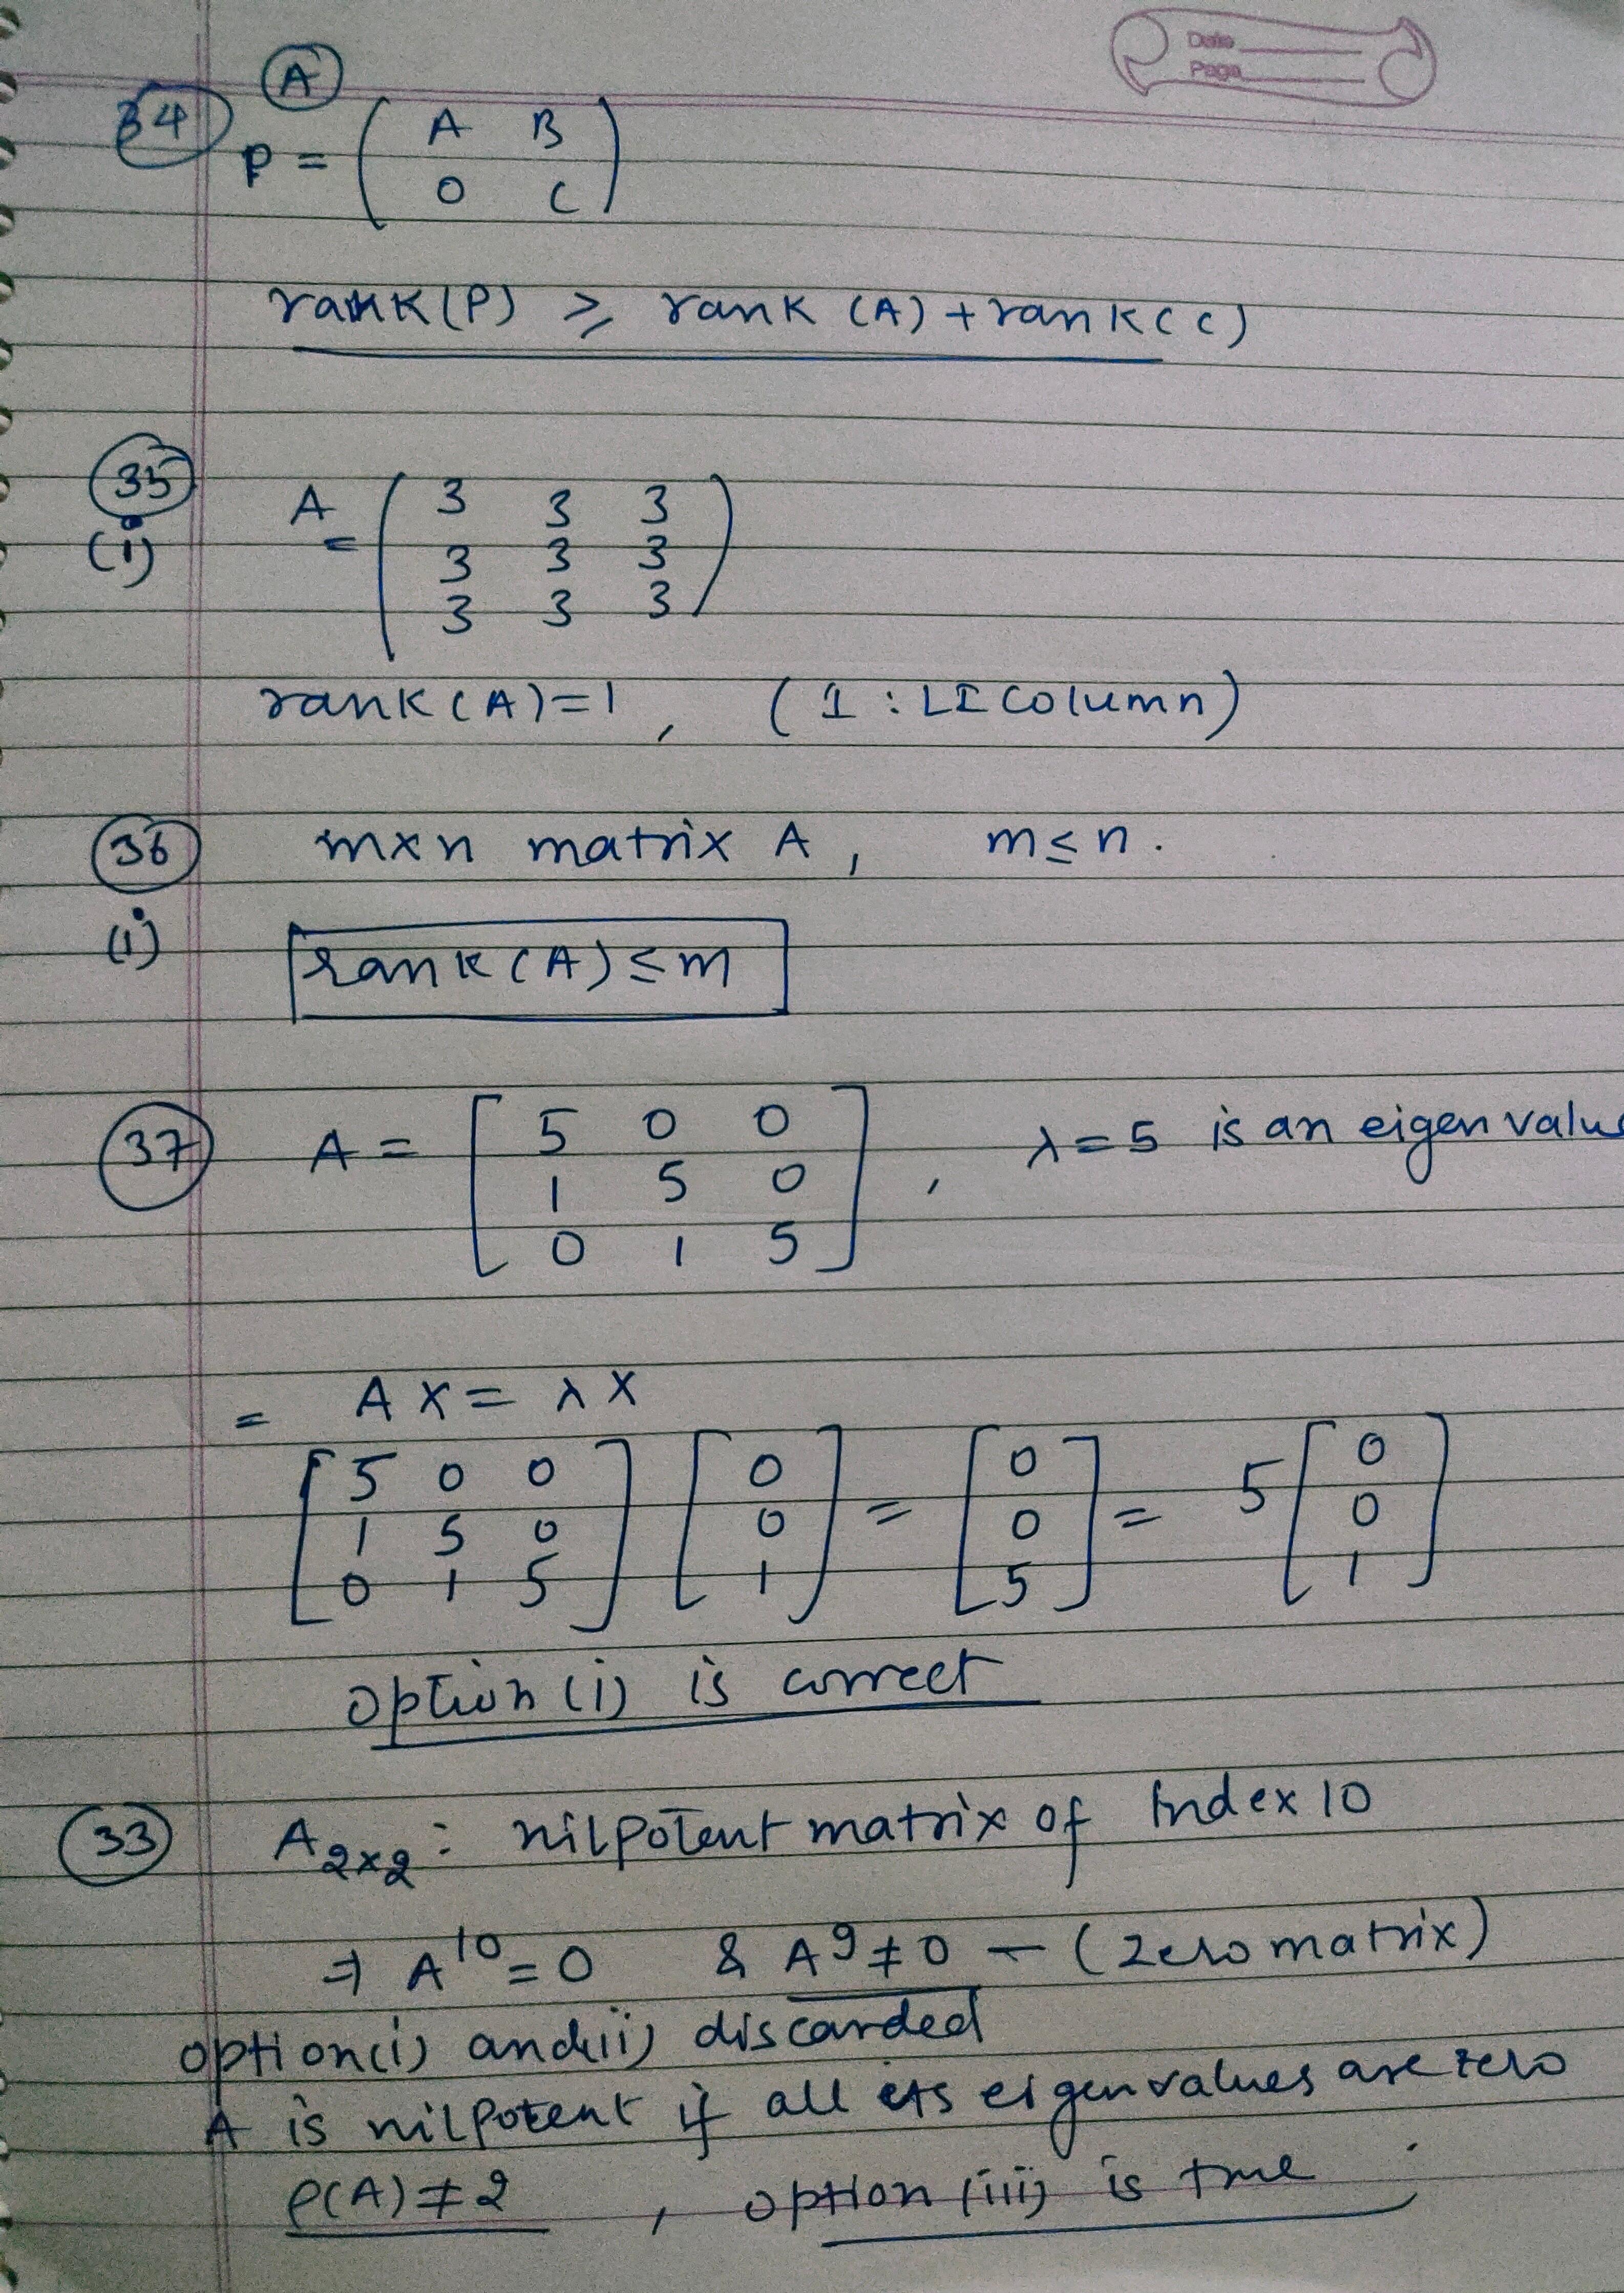 Date
Page
(A)
34) P = ( A B
0 C )
rank(P) ≥ rank (A) + rank(C)
35
(i) A = ( 3 3 3
3 3 3
3 3 3 )
rank(A)=1, (1 : LI Column)
36 m×n matrix A, m≤n.
(i) rank(A) ≤ m
37 A = [ 5 0 0
1 5 0
0 1 5 ] , λ=5 is an eigen value
= AX = λX
[ 5 0 0 ] [ 0 ] = [ 0 ] = 5 [ 0 ]
[ 1 5 0 ] [ 0 ] [ 0 ] [ 0 ]
[ 0 1 5 ] [ 1 ] [ 5 ] [ 1 ]
option (i) is correct
33 A2×2 : nilpotent matrix of Index 10
⇒ A^10 = 0 & A^9 ≠ 0 — (zero matrix)
option(i) and(ii) discarded
A is nilpotent if all its eigenvalues are zero
ρ(A) ≠ 2 , option (iii) is true